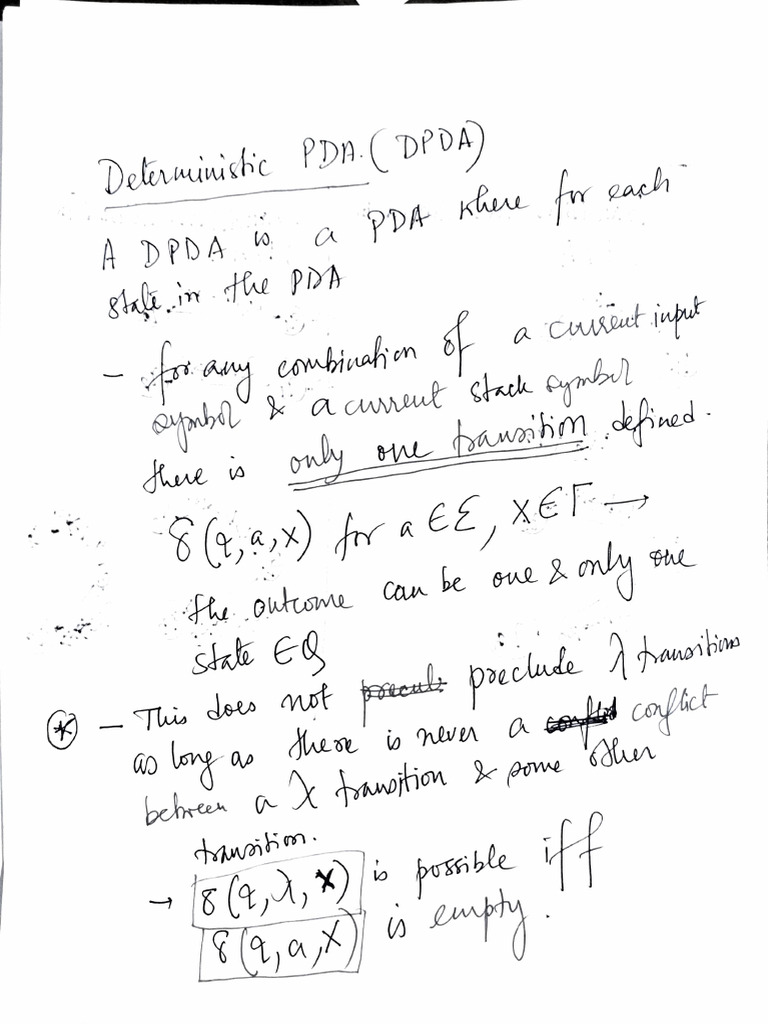 Deterministic PDA. (DPDA)
A DPDA is a PDA where for each
state in the PDA
- for any combination of a current input
symbol & a current stack symbol
there is only one transition defined.
δ(q, a, X) for a ∈ Σ, X ∈ Γ →
the outcome can be one & only one
state ∈ Q
* - This does not preclude λ transitions
as long as there is never a conflict
between a λ transition & some other
transition.
→ δ(q, λ, X) is possible iff
δ(q, a, X) is empty.